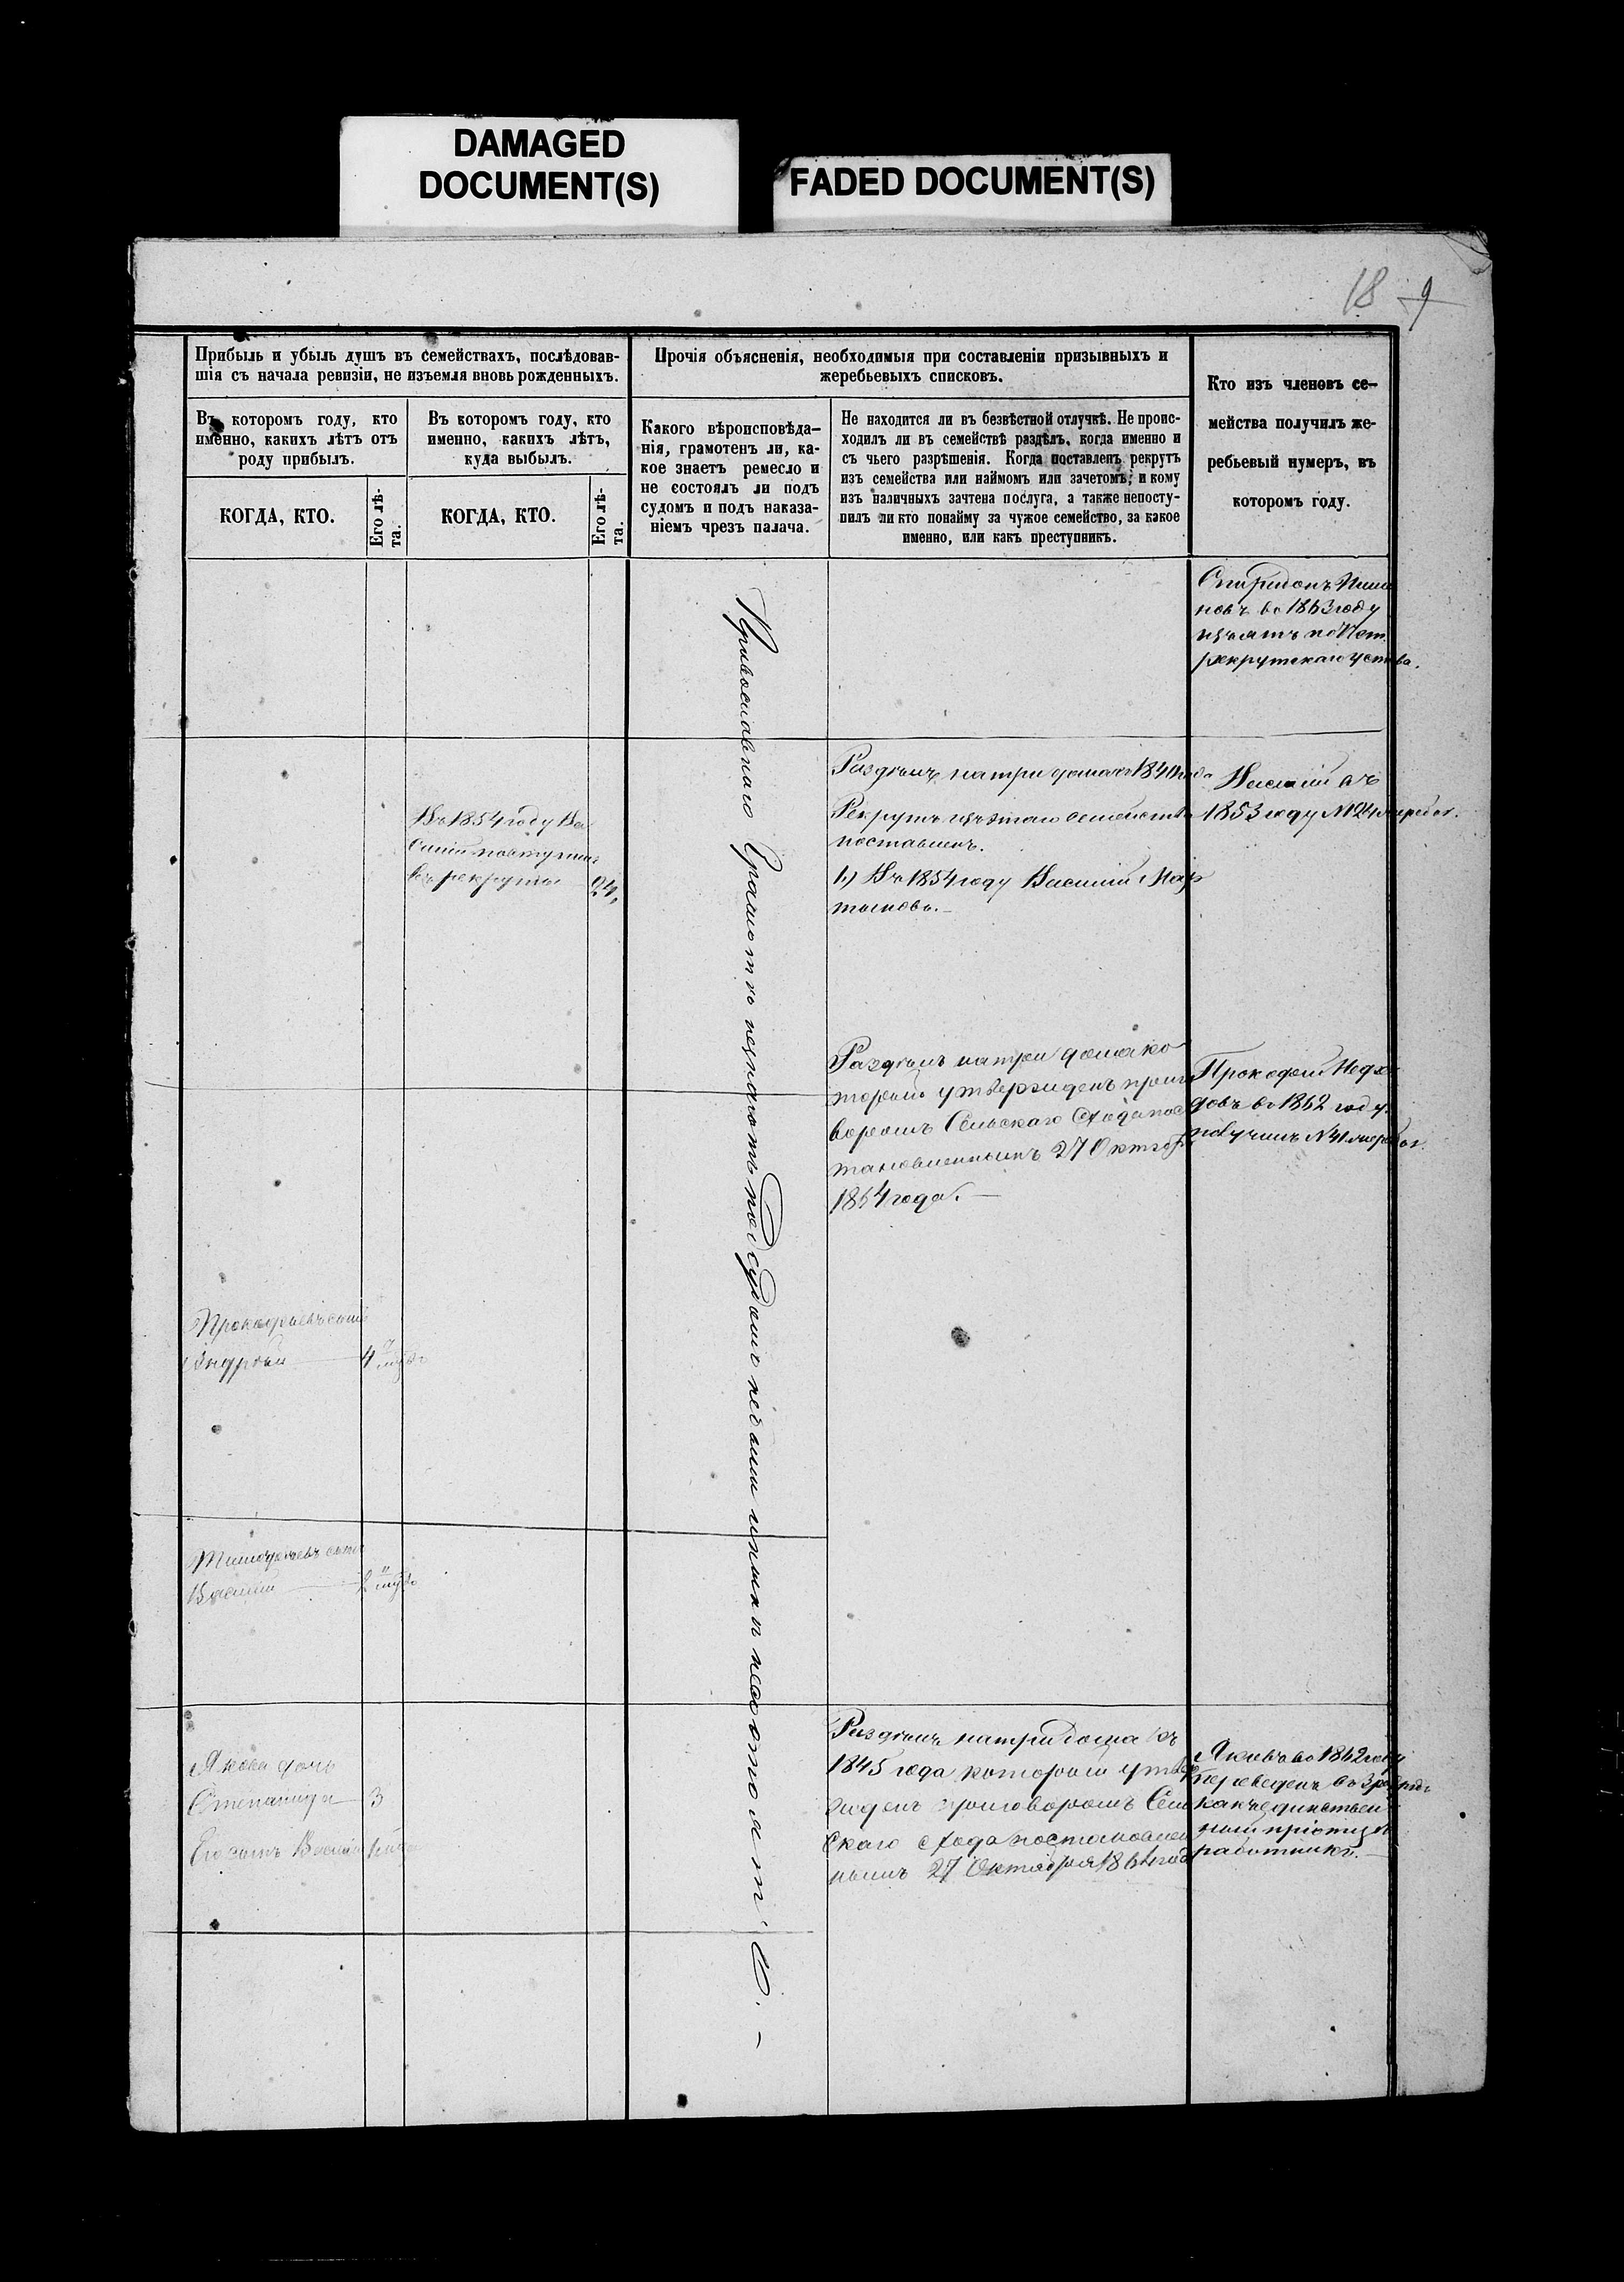 DAMAGED
DOCUMENT(S)
FADED DOCUMENT(S)
18 9
Прибыль и убыль душъ въ семействахъ, послѣдовав-
шія съ начала ревизіи, не изъемля вновь рожденныхъ.
Въ которомъ году, кто
именно, какихъ лѣтъ отъ
роду прибылъ.
КОГДА, КТО.
Его лѣ-
та.
Въ которомъ году, кто
именно, какихъ лѣтъ,
куда выбылъ.
КОГДА, КТО.
Его лѣ-
та.
Прочія объясненія, необходимыя при составленіи призывныхъ и
жеребьевыхъ списковъ.
Какого вѣроисповѣда-
нія, грамотенъ ли, ка-
кое знаетъ ремесло и
не состоялъ ли подъ
судомъ и подъ наказа-
ніемъ чрезъ палача.
Не находится ли въ безвѣстной отлучкѣ. Не проис-
ходилъ ли въ семействѣ раздѣлъ, когда именно и
съ чьего разрѣшенія. Когда поставленъ рекрутъ
изъ семейства или наймомъ или зачетомъ; и кому
изъ наличныхъ зачтена послуга, а также непосту-
пилъ ли кто понайму за чужое семейство, за какое
именно, или какъ преступникъ.
Кто изъ членовъ се-
мейства получилъ же-
ребьевый нумеръ, въ
которомъ году.
Спиридонъ
новъ во 1863 году
изъятъ по
рекрутскаго устава.
Раздѣлъ на три дома
Рекрутъ изъ этаго семейства
поставленъ.
1,) Въ 1854 году Василій Мар
тыновъ.
Василій въ
1853 году №24
Въ 1854 году Ва
силій поступилъ
въ рекруты
24,
Раздѣлъ на три дома ко
торый утвержденъ приго
воромъ Сельскаго Схода пос
тановленнымъ 27 Октяб
1864 года.
Прокофій
довъ во 1862 году
получилъ №41
Прокофьевъ сынъ
Андрей
4
Тимофеевъ сынъ
Василій
Раздѣлъ на три дома въ
1845 года который утвер
жденъ приговоромъ Сель
скаго схода постановлен
нымъ 27 Октября 1864 года
Яковъ во 1862 году
переведенъ въ 3 разрядъ
какъ единствен
ный
работникъ.
Якова дочь
Степанида
3
Его зять Василій
Православнаго Грамотѣ незнаютъ подсудомъ